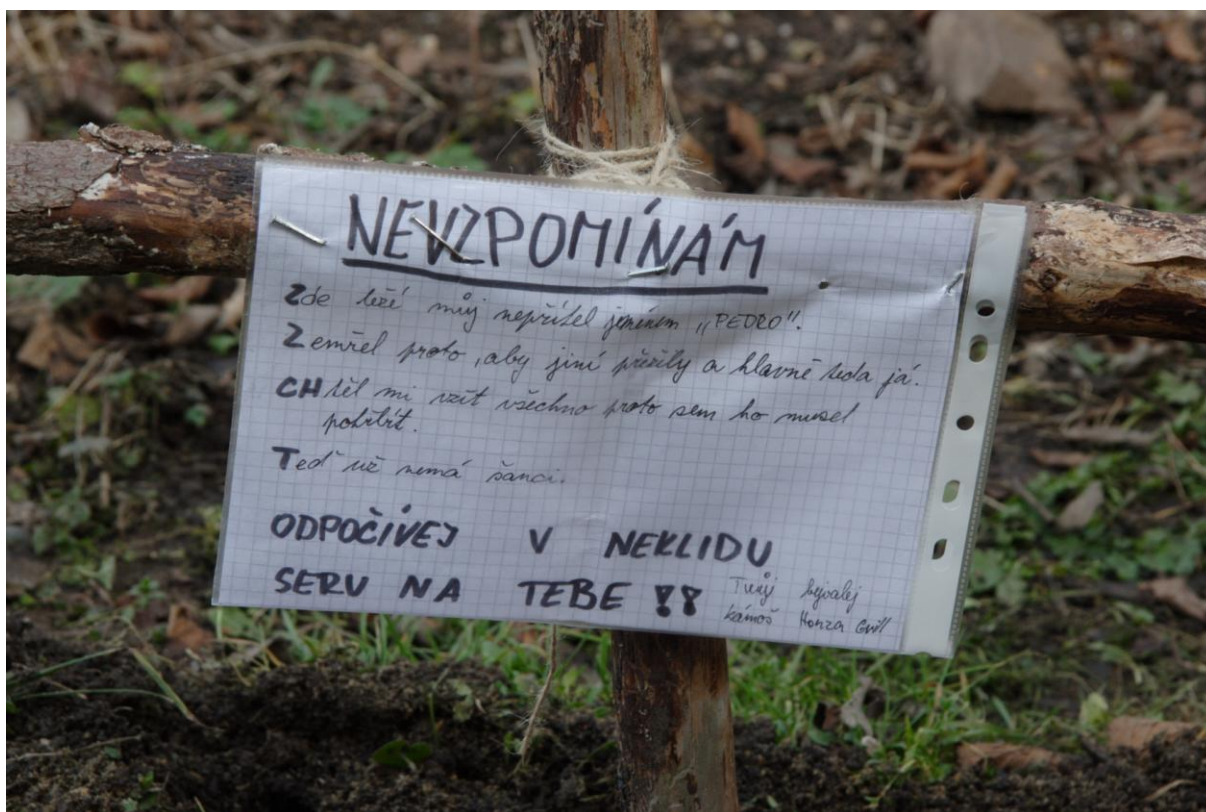 NEVZPOMÍNÁM
Zde leží můj nepřítel jeménem „PEDRO".
Zemřel proto, aby jiní přežily a hlavně teda já.
CHtěl mi vzít všechno proto sem ho musel
pohřbít.
Teď už nemá šanci.
ODPOČÍVEJ V NEKLIDU
SERU NA TEBE !!
Tvůj bývalej
kámoš Honza Grill